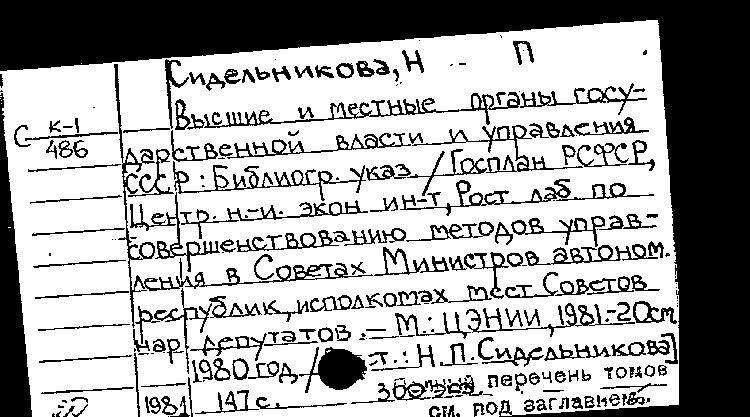 Сидельникова, Н П
С К-1
486
Высшие и местные органы госу-
дарственной власти и управления
СССР : Библиогр. указ. / Госплан РСФСР,
Центр. н.-и. экон. ин-т, Рост. лаб. по
совершенствованию методов управ-
ления в Советах Министров автоном.
республик, исполкомах мест. Советов
нар. депутатов. – М. : ЦЭНИИ, 1981.-20см
1980 год / т.: Н.П.Сидельникова]
1981 147 с. перечень томов
см. под заглавием.